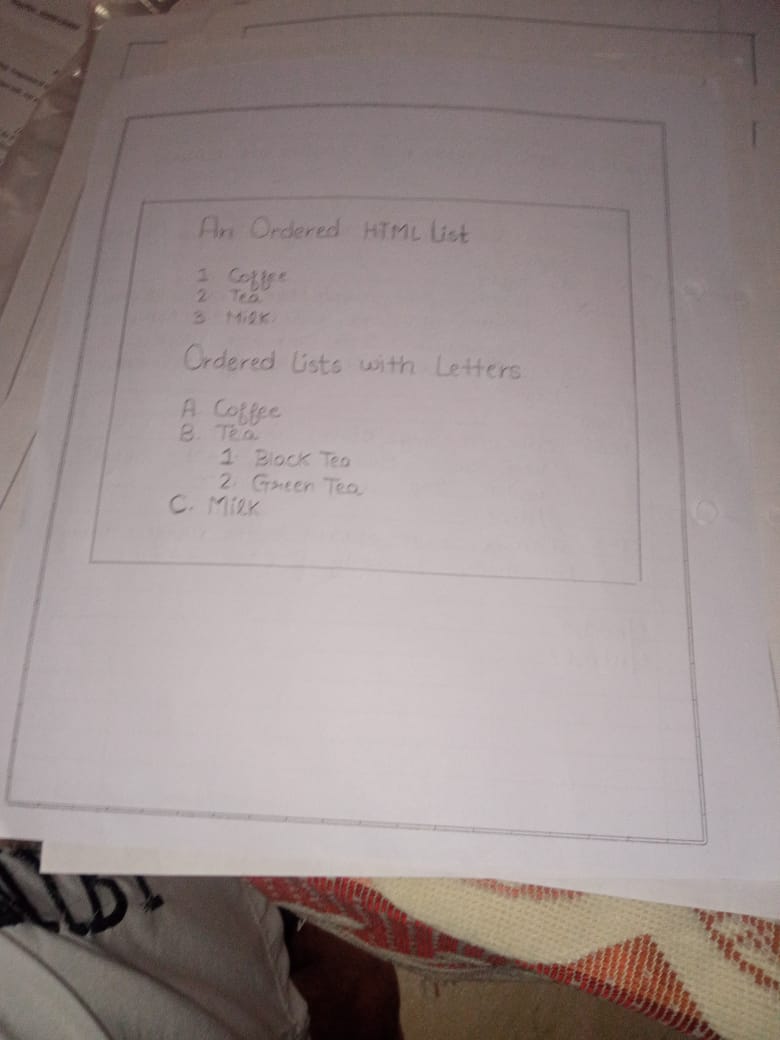 An Ordered HTML List
1 Coffee
2 Tea
3 Milk
Ordered Lists with Letters
A Coffee
B. Tea
1. Black Tea
2. Green Tea
C. Milk